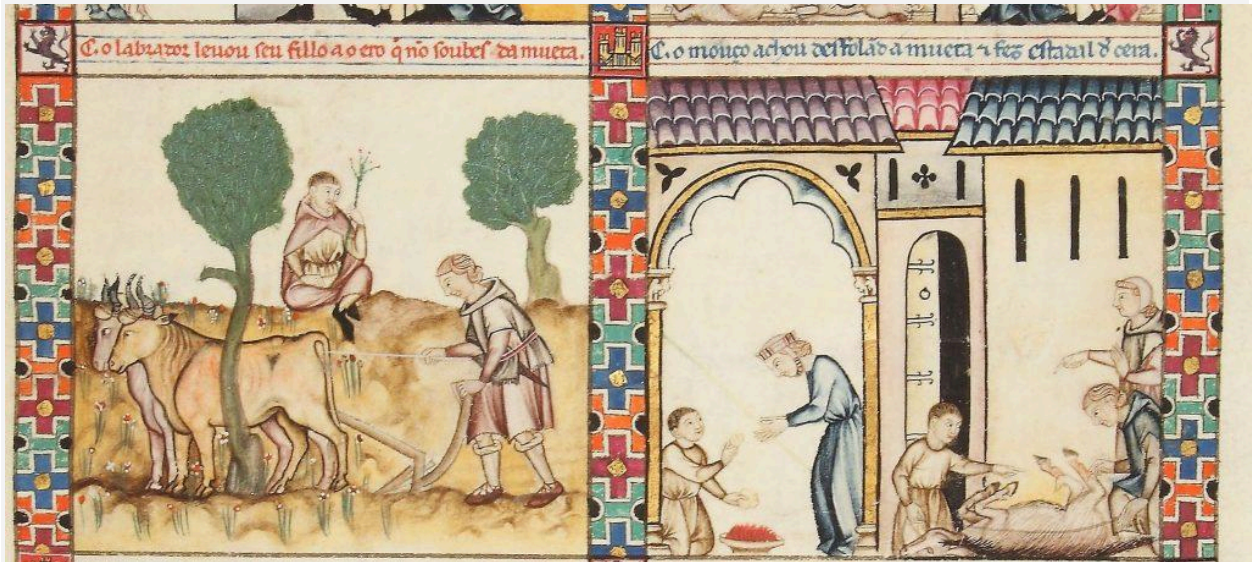 C. o labrador leuou seu fillo a o ero q̄ nō soubes da mueta.
C. o mouço achou desfolād a mueta ⁊ fez estadal d̓ cera.